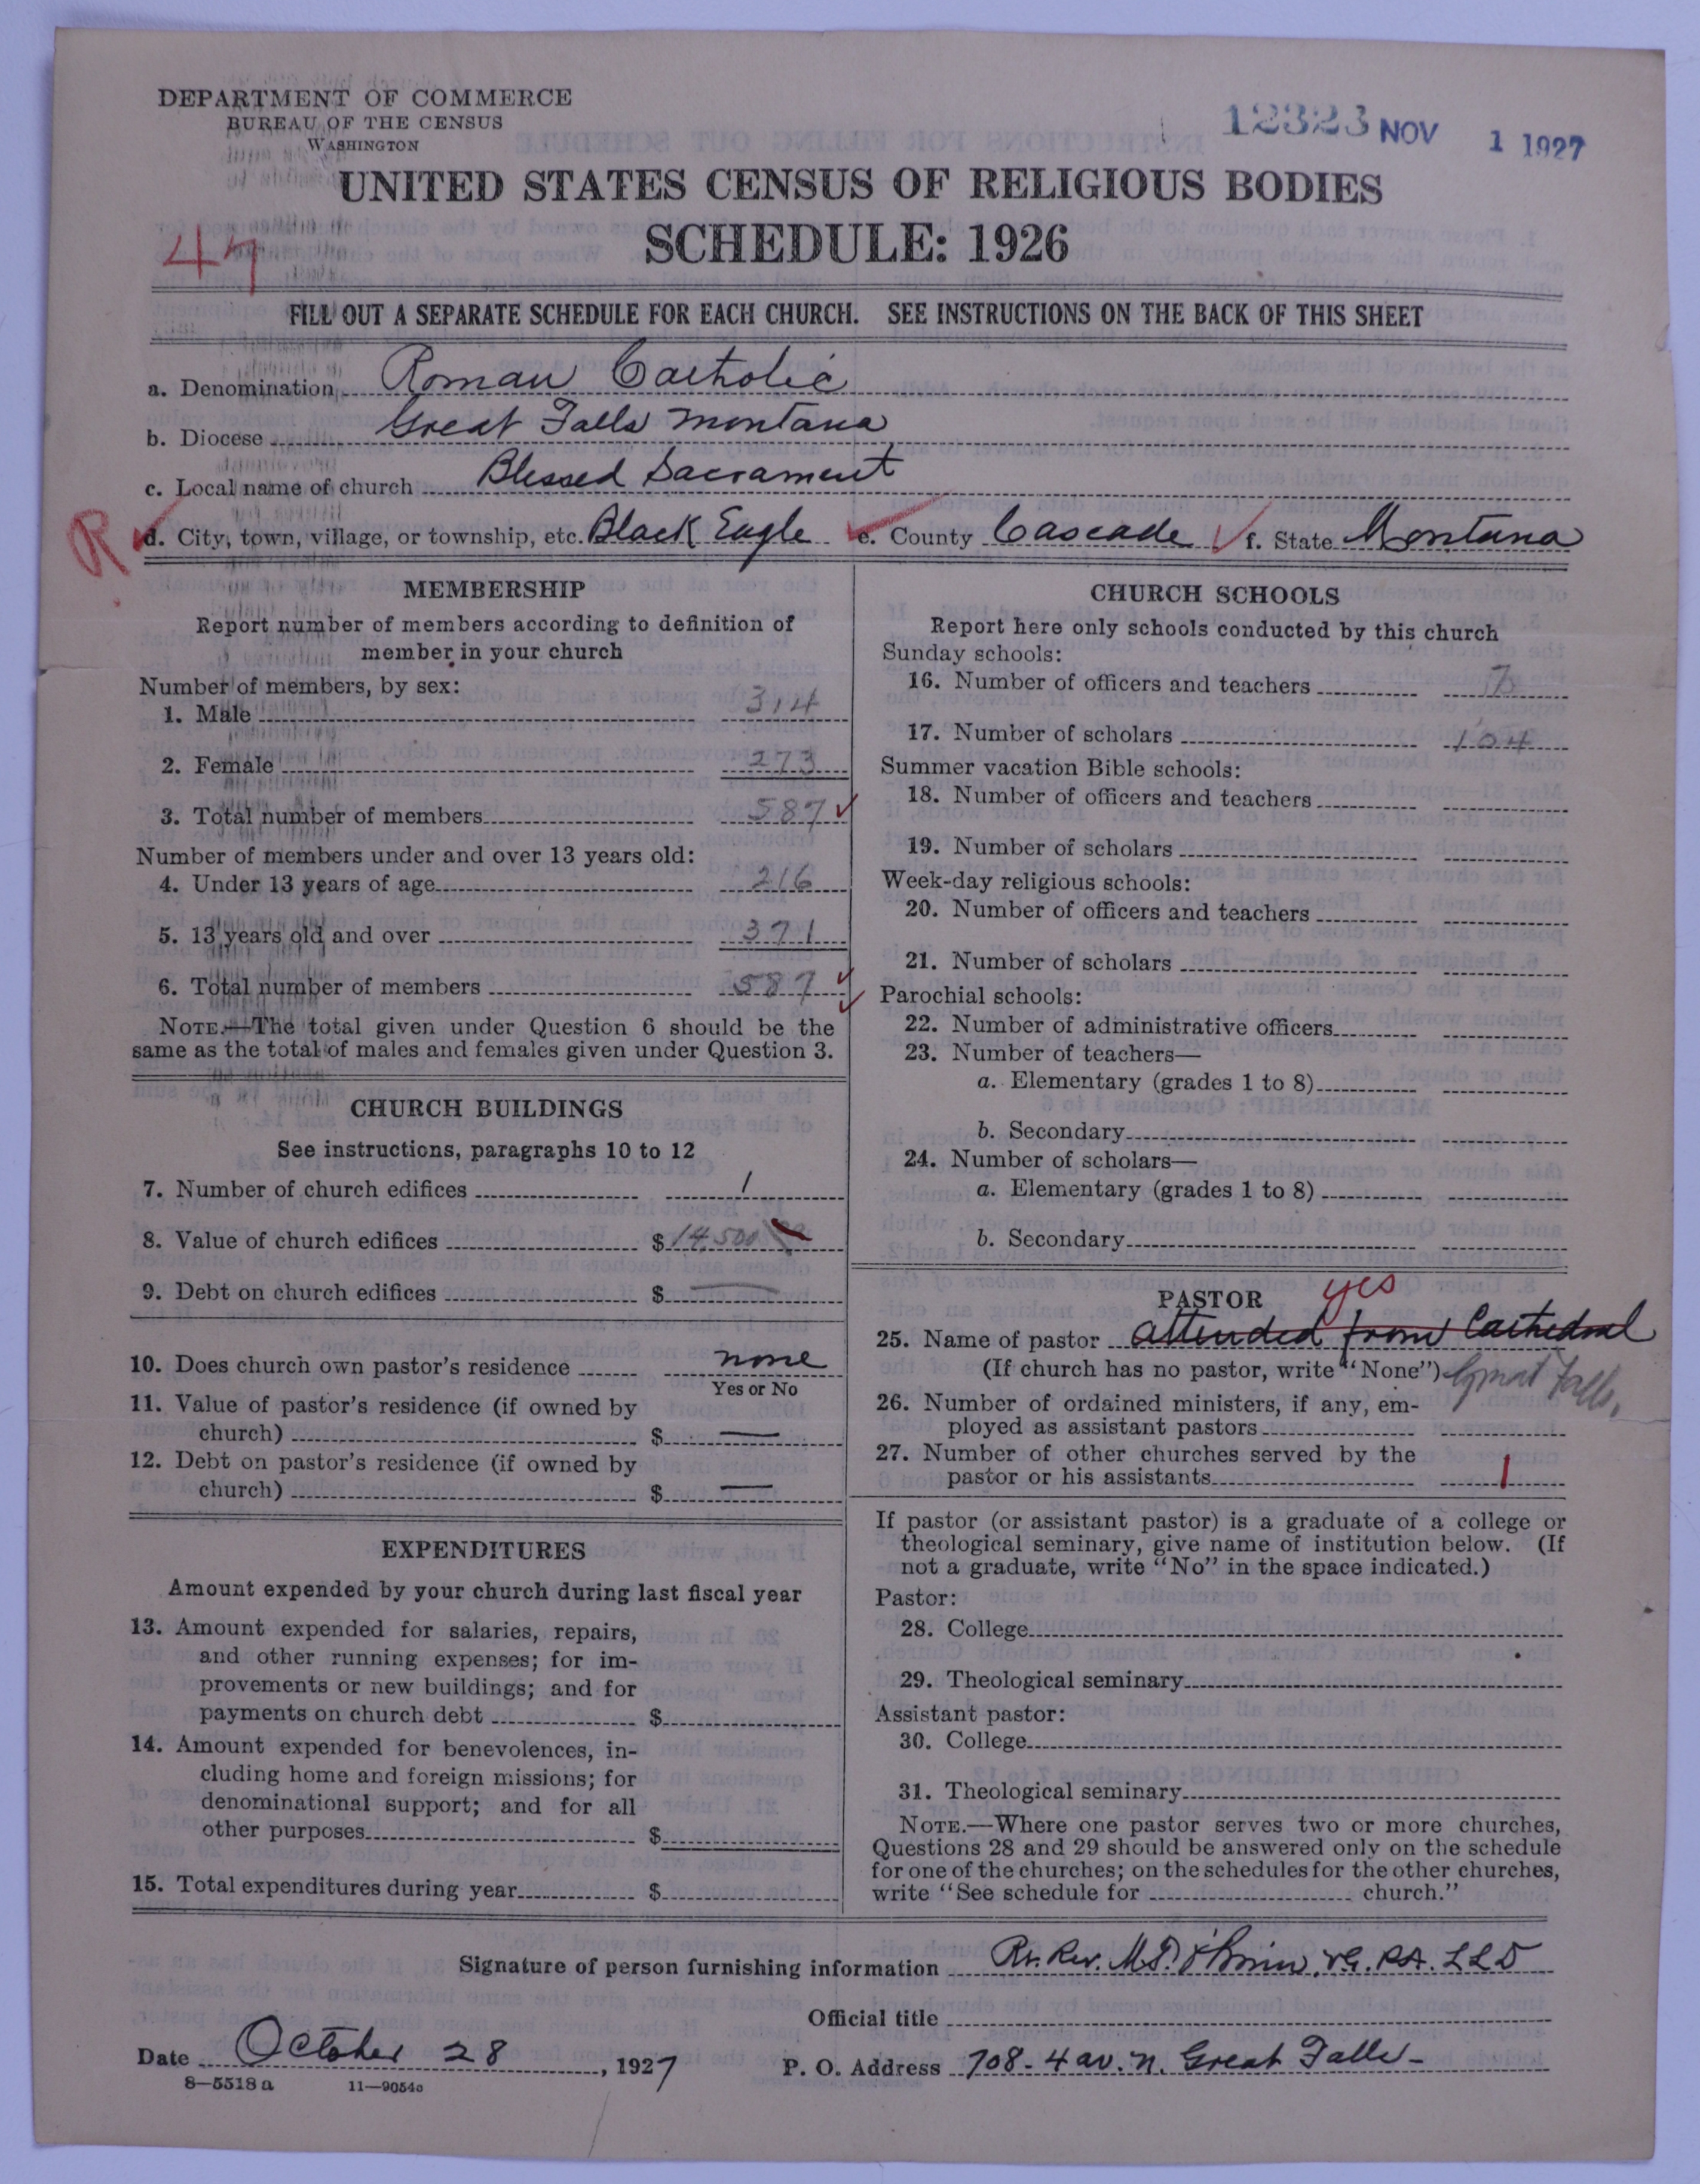 DEPARTMENT OF COMMERCE
BUREAU OF THE CENSUS
WASHINGTON
12323 NOV 1 1927
UNITED STATES CENSUS OF RELIGIOUS BODIES
SCHEDULE: 1926
47
FILL OUT A SEPARATE SCHEDULE FOR EACH CHURCH. SEE INSTRUCTIONS ON THE BACK OF THIS SHEET
a. Denomination Roman Catholic
b. Diocese Great Falls Montana
c. Local name of church Blessed Sacrament
R d. City, town, village, or township, etc. Black Eagle e. County Cascade f. State Montana
MEMBERSHIP
Report number of members according to definition of
member in your church
Number of members, by sex:
1. Male 314
2. Female 273
3. Total number of members 587
Number of members under and over 13 years old:
4. Under 13 years of age 216
5. 13 years old and over 371
6. Total number of members 587
NOTE.—The total given under Question 6 should be the
same as the total of males and females given under Question 3.
CHURCH BUILDINGS
See instructions, paragraphs 10 to 12
7. Number of church edifices 1
8. Value of church edifices $14,500
9. Debt on church edifices $ —
10. Does church own pastor's residence none
Yes or No
11. Value of pastor's residence (if owned by
church) $ —
12. Debt on pastor's residence (if owned by
church) $ —
EXPENDITURES
Amount expended by your church during last fiscal year
13. Amount expended for salaries, repairs,
and other running expenses; for im-
provements or new buildings; and for
payments on church debt $
14. Amount expended for benevolences, in-
cluding home and foreign missions; for
denominational support; and for all
other purposes $
15. Total expenditures during year $
CHURCH SCHOOLS
Report here only schools conducted by this church
Sunday schools:
16. Number of officers and teachers 7
17. Number of scholars 104
Summer vacation Bible schools:
18. Number of officers and teachers
19. Number of scholars
Week-day religious schools:
20. Number of officers and teachers
21. Number of scholars
Parochial schools:
22. Number of administrative officers
23. Number of teachers—
a. Elementary (grades 1 to 8)
b. Secondary
24. Number of scholars—
a. Elementary (grades 1 to 8)
b. Secondary
PASTOR yes
25. Name of pastor attended from Cathedral
(If church has no pastor, write "None") Great Falls,
26. Number of ordained ministers, if any, em-
ployed as assistant pastors
27. Number of other churches served by the
pastor or his assistants 1
If pastor (or assistant pastor) is a graduate of a college or
theological seminary, give name of institution below. (If
not a graduate, write "No" in the space indicated.)
Pastor:
28. College
29. Theological seminary
Assistant pastor:
30. College
31. Theological seminary
NOTE.—Where one pastor serves two or more churches,
Questions 28 and 29 should be answered only on the schedule
for one of the churches; on the schedules for the other churches,
write "See schedule for church."
Signature of person furnishing information Rt. Rev. M.D. LLD
Official title
Date October 28, 1927 P. O. Address 708-4 av. n. Great Falls-
8—5518 a 11—9054c